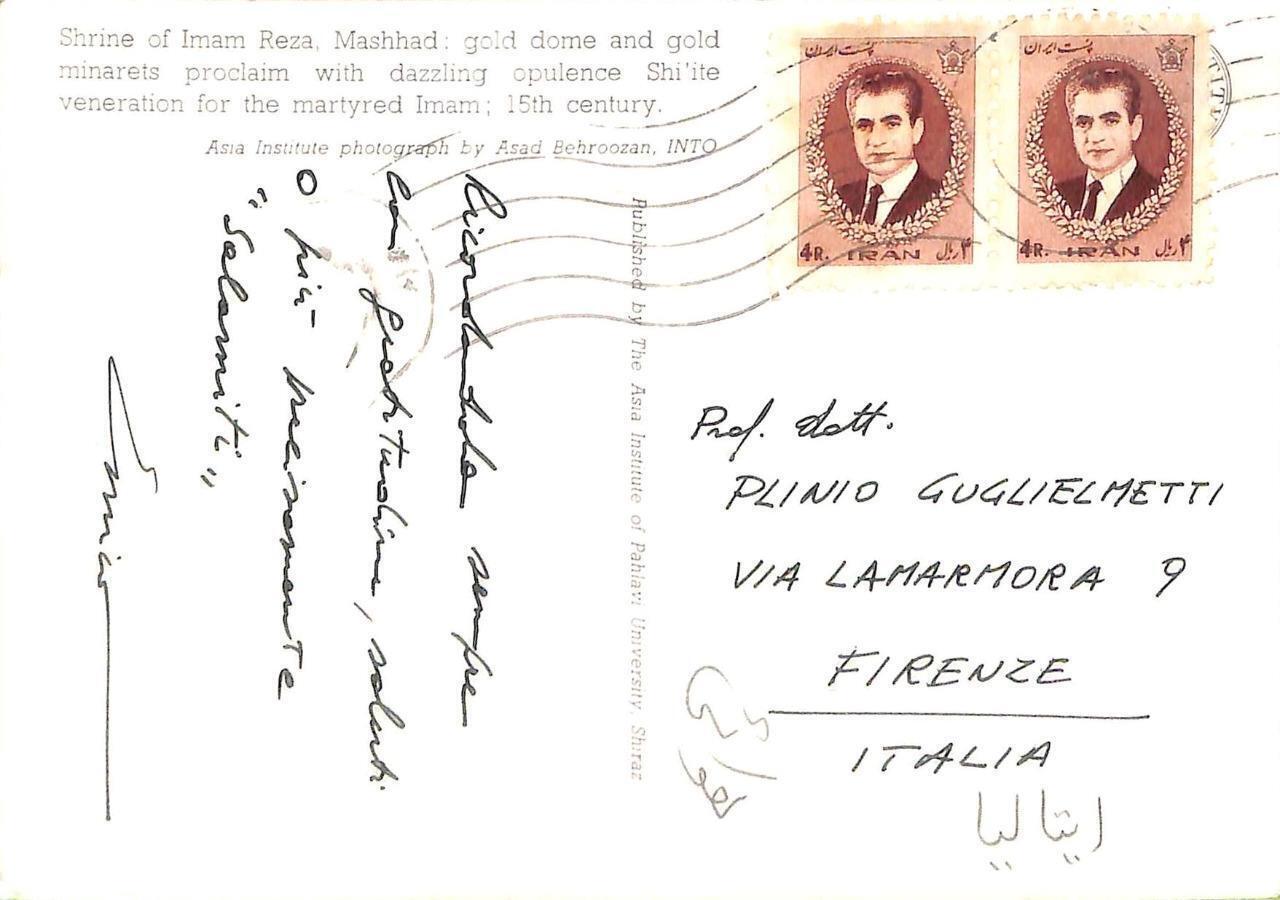 Shrine of Imam Reza, Mashhad: gold dome and gold
minarets proclaim with dazzling opulence Shi'ite
veneration for the martyred Imam; 15th century.
Asia Institute photograph by Asad Behroozan, INTO
Ricordandola sempre
con gratitudine, saluti
o più precisamente
"Salamiti"
Enrico
Published by The Asia Institute of Pahlavi University, Shiraz
پست ایران
4R. IRAN ۴ ریال
پست ایران
4R. IRAN ۴ ریال
Prof. dott.
PLINIO GUGLIELMETTI
VIA LAMARMORA 9
FIRENZE
ITALIA
ایتالیا
هوائی